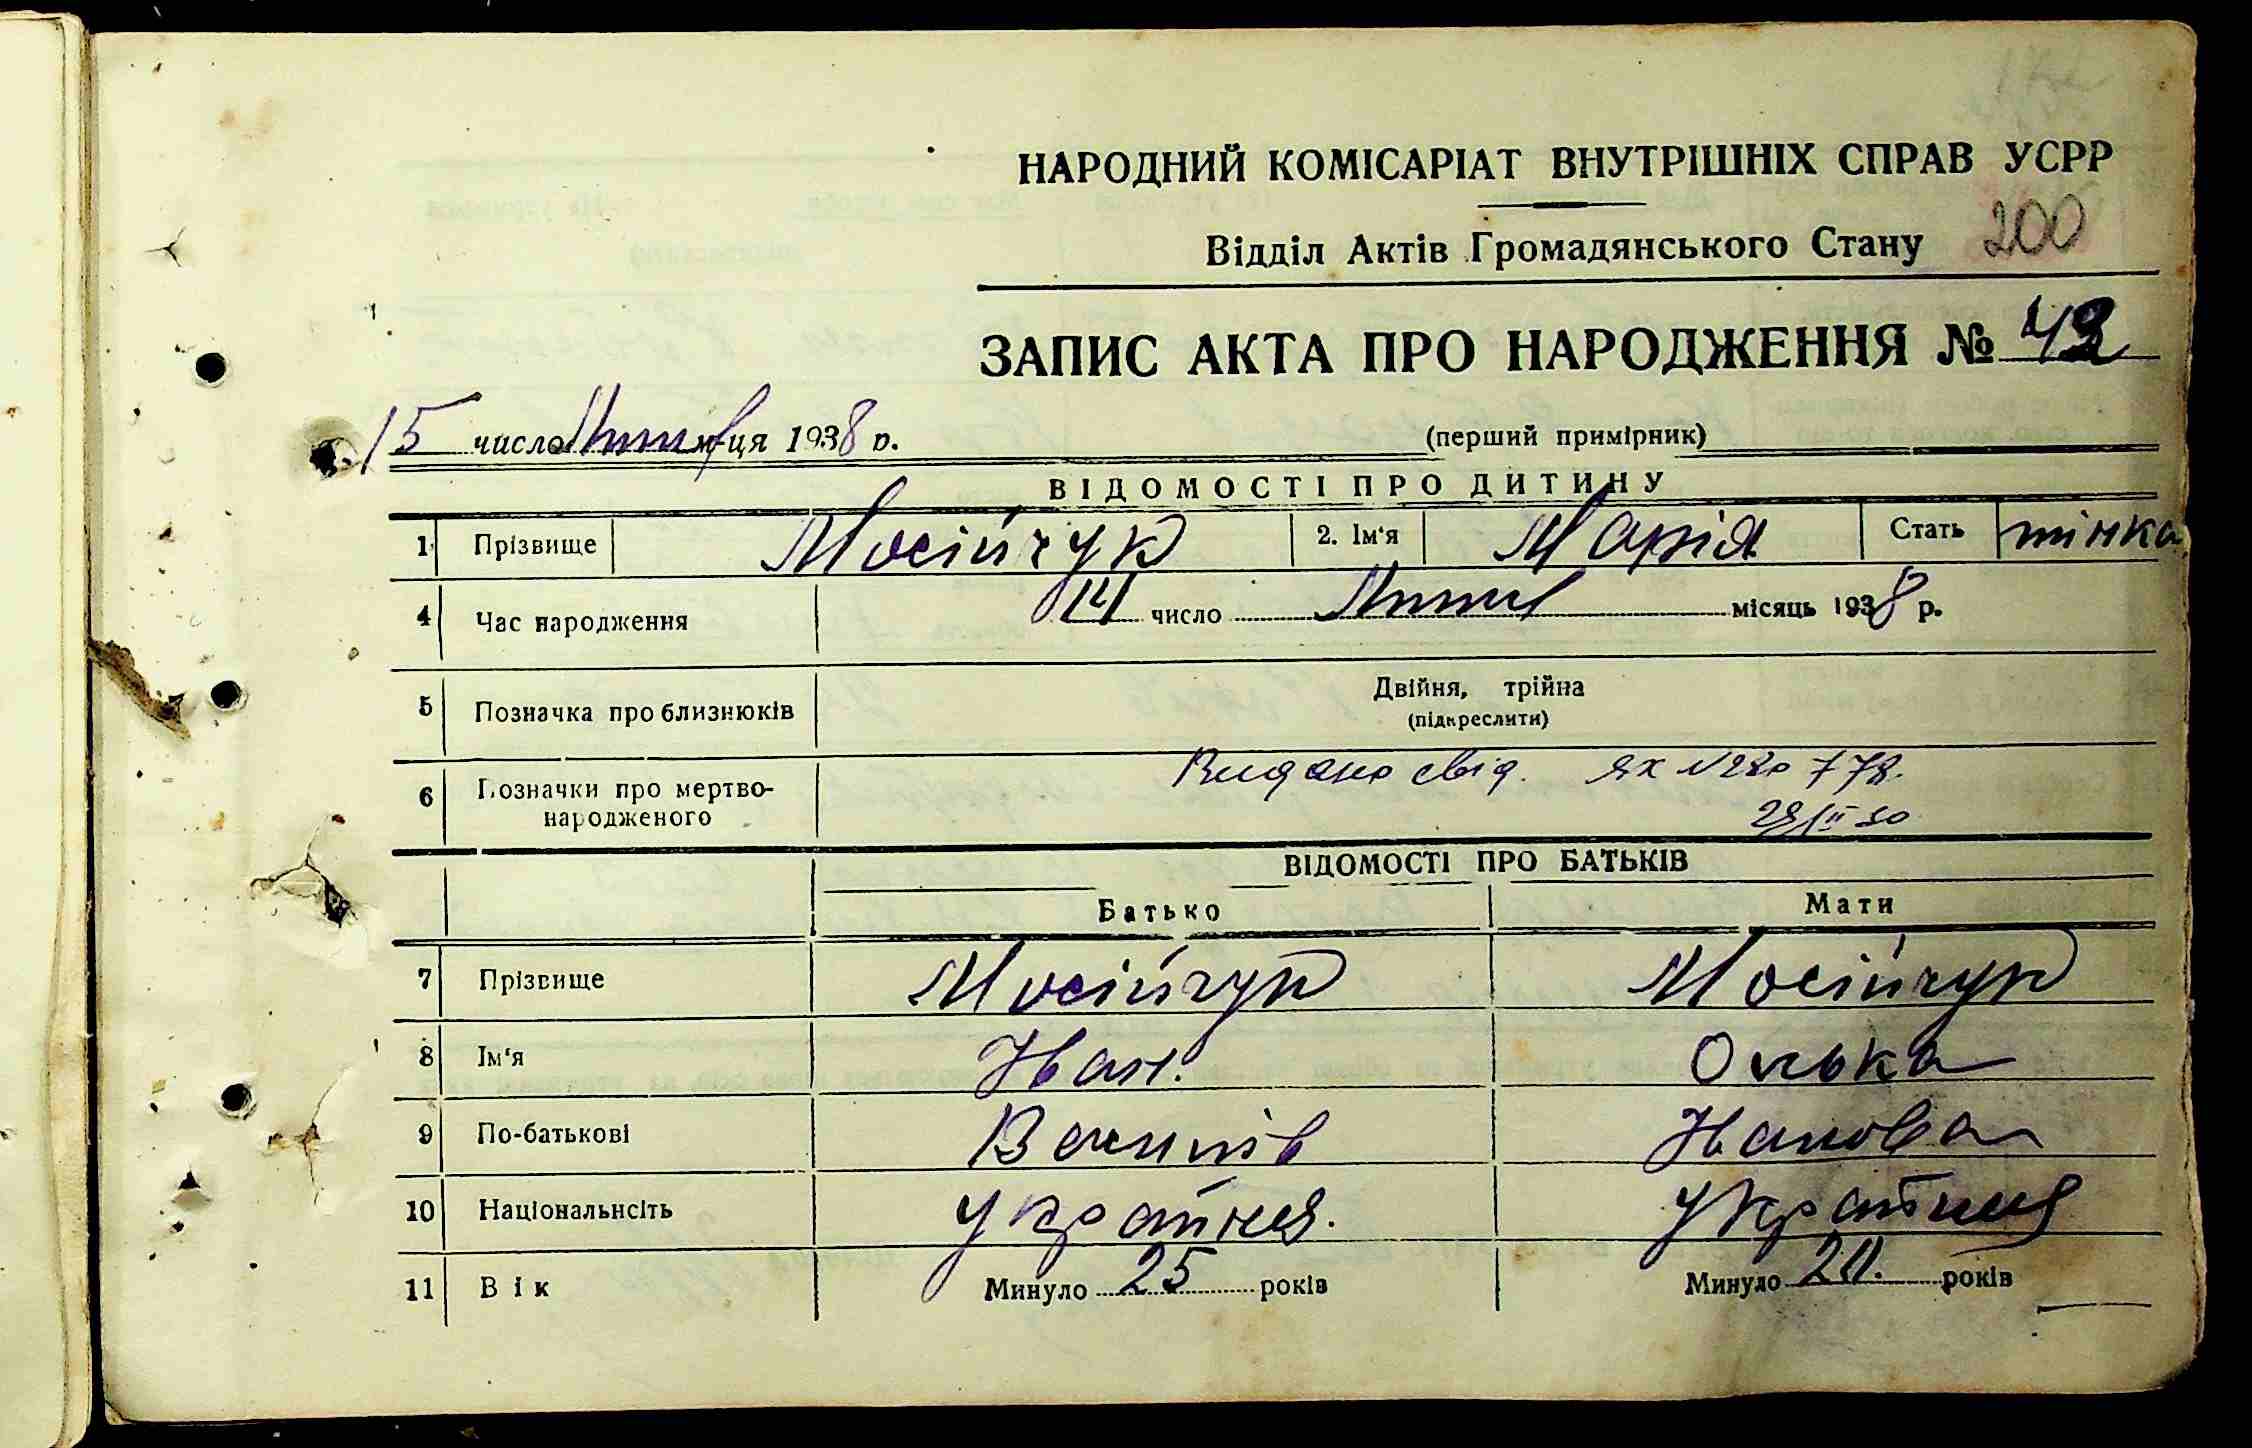 НАРОДНИЙ КОМІСАРІАТ ВНУТРІШНІХ СПРАВ УСРР
Відділ Актів Громадянського Стану 200
ЗАПИС АКТА ПРО НАРОДЖЕННЯ № 42
15 число м-ця 1938 р. (перший примірник)
ВІДОМОСТІ ПРО ДИТИНУ
1 Прізвище Мосійчук 2. Ім'я Марія Стать жінка
4 Час народження 14 число місяць 1938 р.
5 Позначка про близнюків Двійня, трійна
(підкреслити)
6 Позначки про мертво-
народженого
Видано свід. ЯХ
ВІДОМОСТІ ПРО БАТЬКІВ
Батько Мати
7 Прізвище Мосійчук Мосійчук
8 Ім'я Іван. Олька
9 По-батькові Іванова
10 Національнсіть
11 Вік Минуло 25 років Минуло років